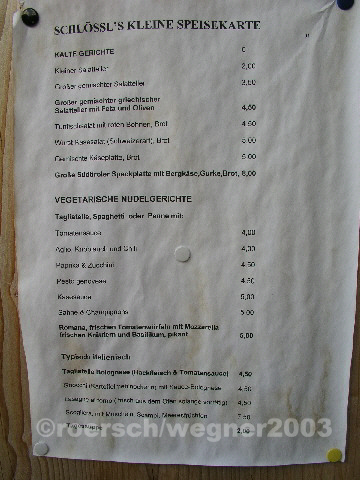 SCHLÖSSL'S KLEINE SPEISEKARTE
KALTE GERICHTE
Kleiner Salatteller 2,00
Großer gemischter Salatteller 3,50
Großer gemischter griechischer
Salatteller mit Feta und Oliven 4,50
Tunfischsalat mit roten Bohnen, Brot 4,50
Wurst Käsesalat (Schweizerart), Brot 5,00
Gemischte Käseplatte, Brot 5,00
Große Südtiroler Speckplatte mit Bergkäse, Gurke, Brot, 8,00
VEGETARISCHE NUDELGERICHTE
Tagliatelle, Spaghetti oder Penne mit:
Tomatensauce 4,00
Aglio, Knoblauch und Chili 4,00
Paprika & Zucchini 4,50
Pesto genovese 4,50
Käsesauce 5,00
Sahne & Champignons 5,00
Romana, frischen Tomatenwürfeln mit Mozzarella
frischen Kräutern und Basilikum, pikant 5,00
Typisch italienisch
Tagliatelle Bolognese (Hackfleisch & Tomatensauce) 4,50
Gnocchi (Kartoffelteignocken) mit Bolognese 4,50
(frisch aus dem Ofen solange vorrätig) 4,50
mit Muscheln, Scampi, Meeresfrüchten 7,50
Tagessuppe 2,00
©roersch/wegner2003